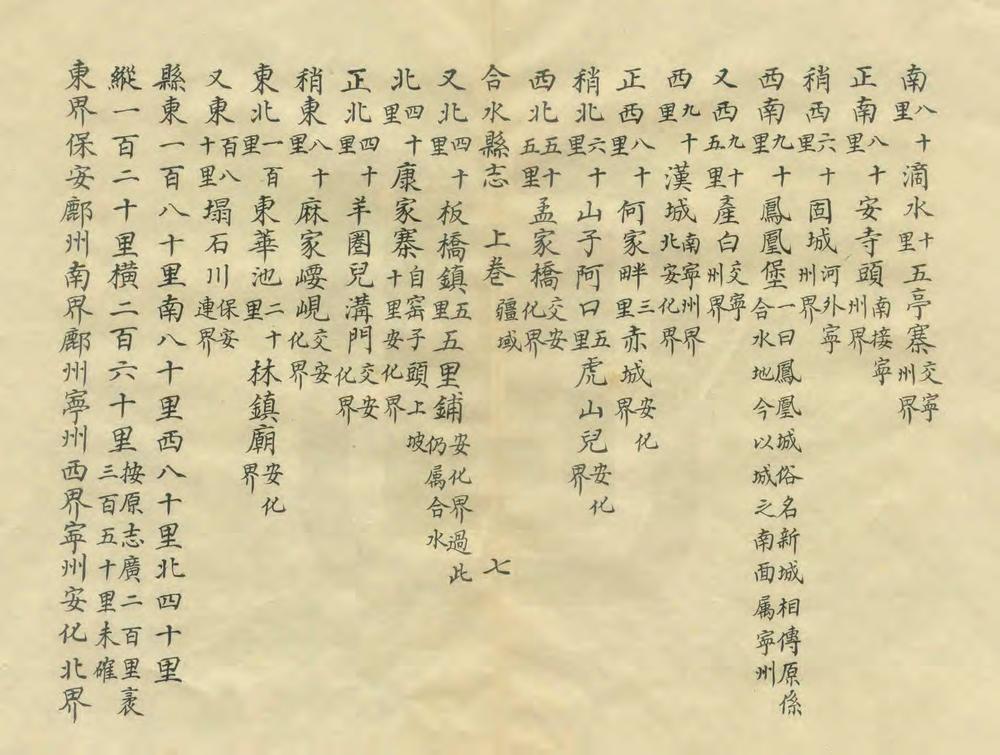 南八十里滴水十里五亭寨交寧州界
正南八十里安寺頭南接寧州界
稍西六十里固城河外寧州界
西南九十里鳳凰堡一曰鳳凰城俗名新城相傳原係合水地今以城之南面属寧州
又西九十五里產白交寧州界
西九十里漢城南寧州界北安化界
正西八十里何家畔三里赤城安化界
稍北六十里山子阿口五里虎山兒安化界
西北五十五里孟家橋交安化界
合水縣志 上卷 疆域 七
又北四十里板橋鎮五里五里鋪安化界過此仍属合水
北四十里康家寨自窑子頭上坡十里安化界
正北四十里羊圈兒溝門交安化界
稍東八十里麻家崾峴交安化界
東北一百里東華池二十里林鎮廟安化界
又東百八十里塌石川保安連界
縣東一百八十里南八十里西八十里北四十里
縱一百二十里橫二百六十里按原志廣二百里袤三百五十里未確
東界保安鄜州南界鄜州寧州西界寧州安化北界